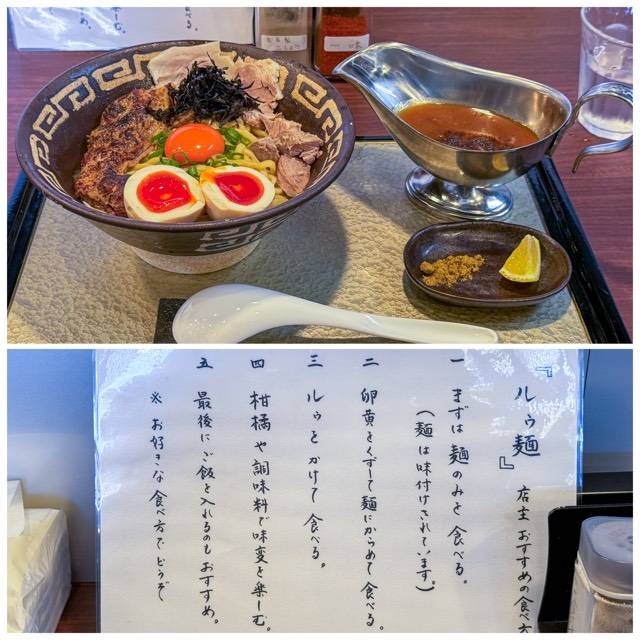 『ルゥ麺』
店主 おすすめの食べ方
一 まずは 麺のみを 食べる。
(麺は味付けされています。)
二 卵黄をくずして 麺にからめて 食べる。
三 ルゥをかけて 食べる。
四 柑橘や調味料で味変を楽しむ。
五 最後にご飯を入れるのも おすすめ。
※ お好きな食べ方でどうぞ